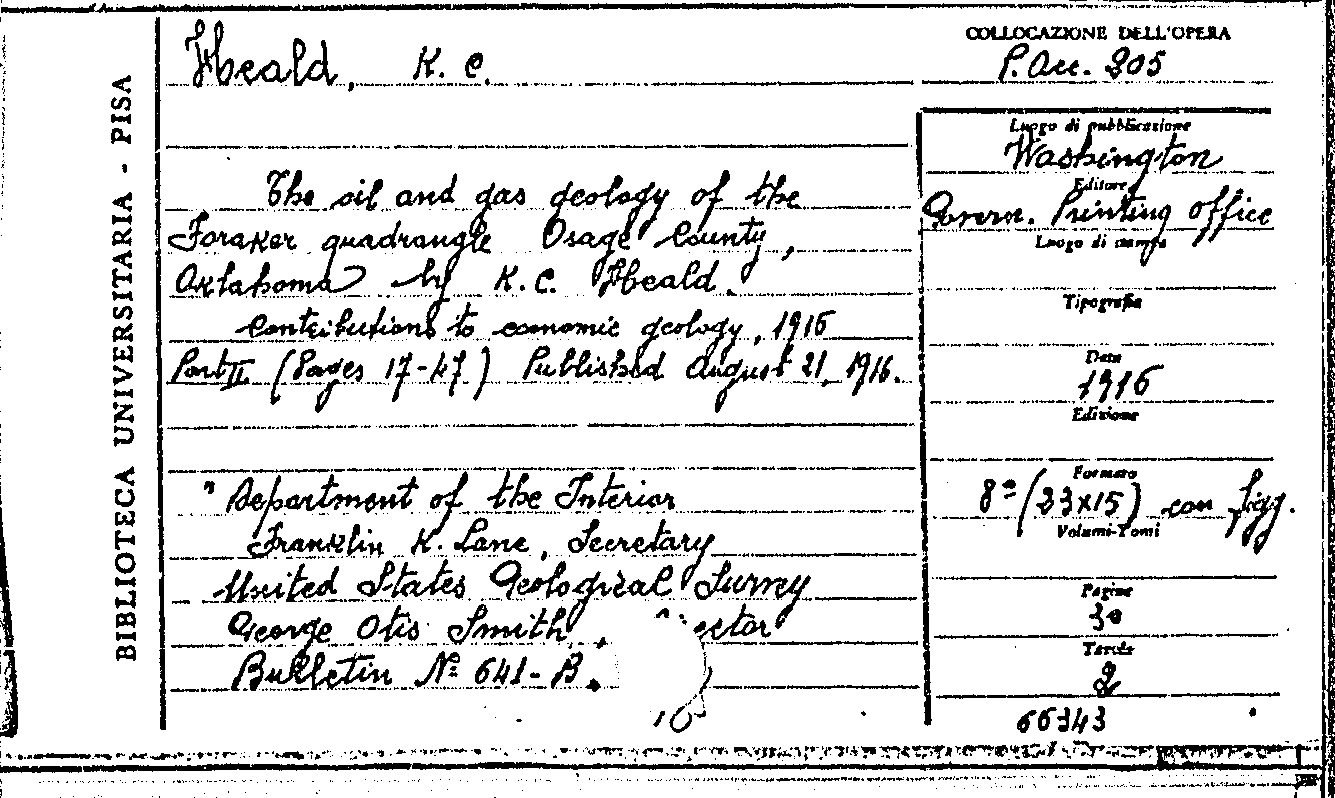 BIBLIOTECA UNIVERSITARIA - PISA
Heald, K. C.
COLLOCAZIONE DELL'OPERA
P. Acc. 205
The oil and gas geology of the
Foraker quadrangle Osage County,
Oklahoma by K.C. Heald.
Contributions to economic geology, 1916
Part II (Pages 17-47) Published August 21, 1916.
"Department of the Interior
Franklin K. Lane, Secretary
United States Geological Survey
George Otis Smith,
Bulletin № 641-B.
Luogo di pubblicazione
Washington
Editore
Govern. Printing office
Luogo di stampa
Tipografia
Data
1916
Edizione
Formato
8° (23x15) con figg.
Volumi-Tomi
Pagine
30
Tavole
2
66343